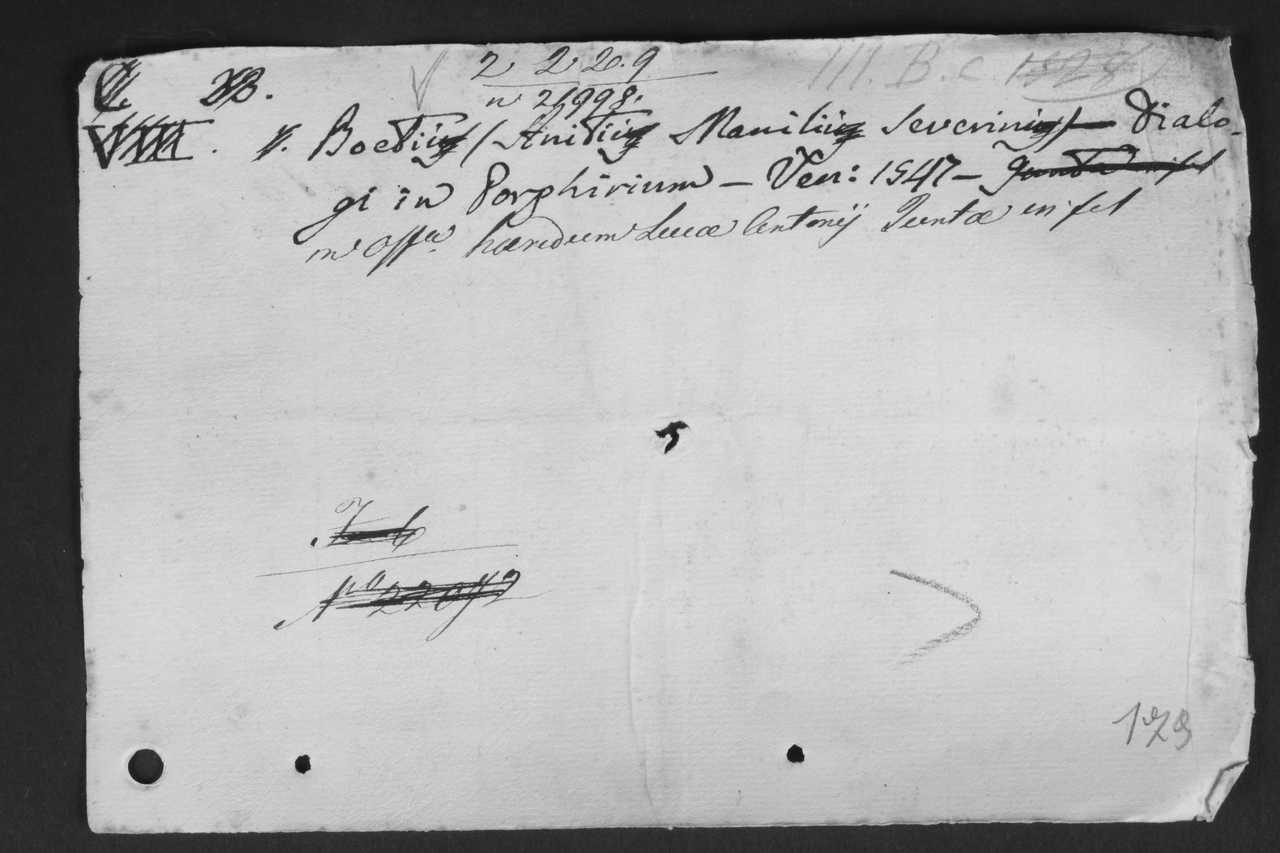 2 2 20.9
III. B. c.
B.
n° 21998.
VIIII . v. Boetius (Anitius Manilius Severinus) — Dialo-
gi in Porphirium — Ven: 1547 — Junta in fol
in Offa. hæredum Lucæ Antonij Juntæ in fol
N° 22092
173